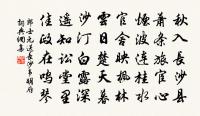 秋入長沙縣
蕭條旅宦心
煙波連桂水
官舍映楓林
雲日楚天暮
沙汀白露深
遙知訟堂里
佳政在鳴琴
郎士元送長沙韋明府
詞典網集